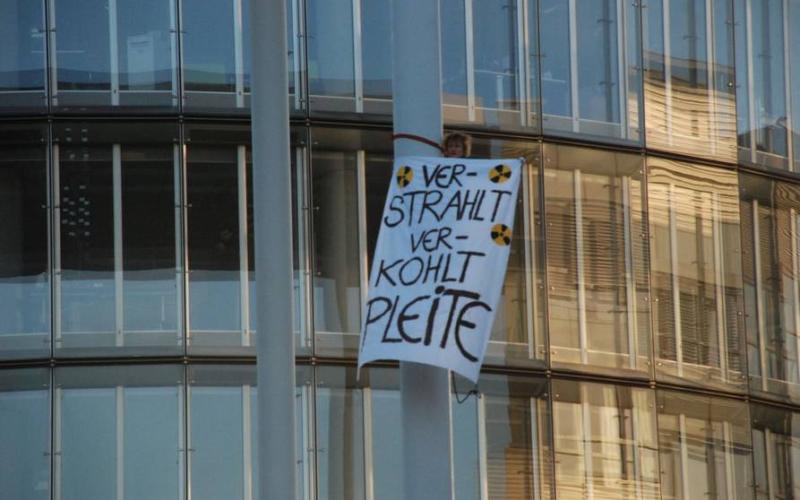 VER-
STRAHLT
VER-
KOHLT
PLEiTE